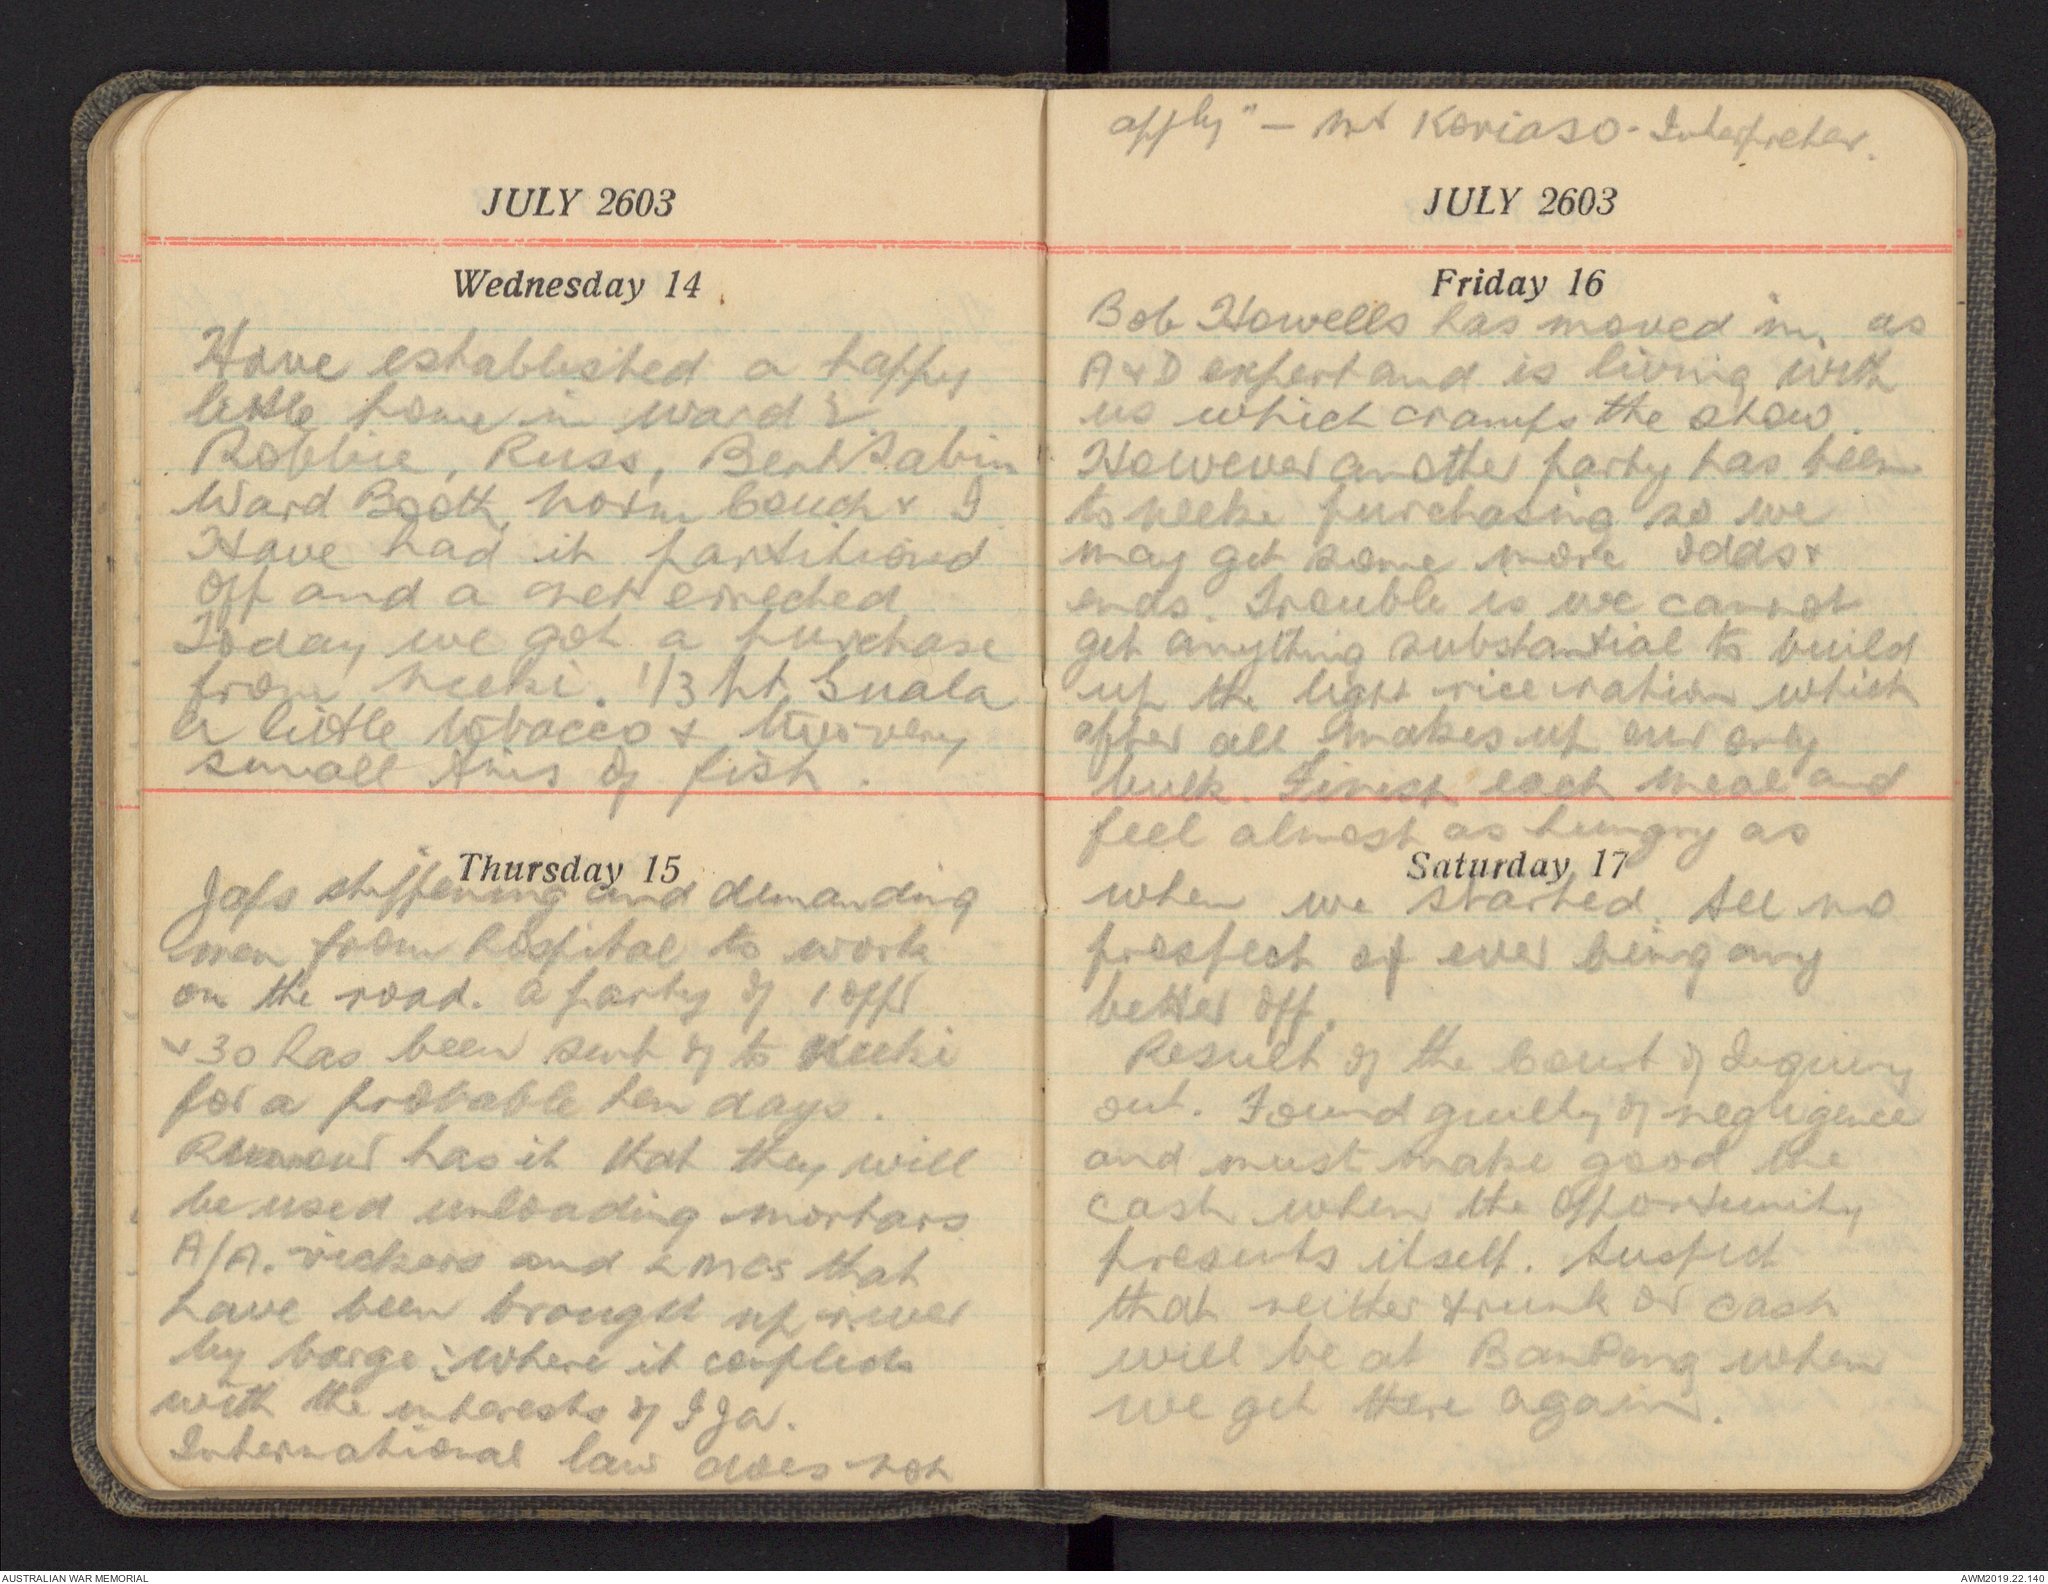 JULY 2603
Wednesday 14
Have established a happy
little home in ward 2.
Robbie, Russ, Bert Sabin
Ward Booth, Norm Couch & I
Have had it partitioned
off and a net erected
Today we got a purchase
from Neeki. 1/3 pt Guala
a little tobacco & two very
small tins of fish.
Thursday 15
Japs stiffening and demanding
men from hospital to work
on the road. A party of 1 offr
& 30 has been sent off to Neeki
for a probable ten days.
Rumour has it that they will
be used unloading mortars
A/A. vickers and LMGs that
have been brought up river
by barge: "where it conflicts
with the interests of IJA.
International law does not
apply" - Mr Koriaso - Interpreter.
JULY 2603
Friday 16
Bob Howells has moved in, as
A & D expert and is living with
us which cramps the show.
However another party has been
to Neeke purchasing so we
may get some more odds &
ends. Trouble is we cannot
get anything substantial to build
up the light rice ration which
after all makes up our only
bulk. Finish each meal and
feel almost as hungry as
Saturday 17
when we started. See no
prospect of ever being any
better off.
Result of the Court of Inquiry
out. Found guilty of negligence
and must make good the
cash when the opportunity
presents itself. Suspect
that neither trunk or cash
will be at BanPong when
we get there again.
AUSTRALIAN WAR MEMORIAL
AWM2019.22.140